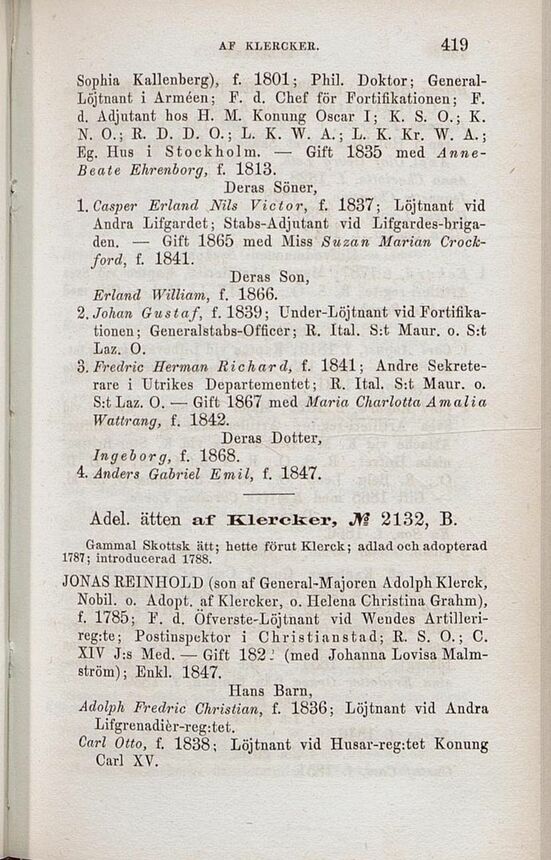 AF KLERCKER. 419
Sophia Kallenberg), f. 1801; Phil. Doktor; General-
Löjtnant i Arméen; F. d. Chef för Fortifikationen; F.
d. Adjutant hos H. M. Konung Oscar I; K. S. O.; K.
N. O.; R. D. D. O.; L. K. W. A.; L. K. Kr. W. A.;
Eg. Hus i Stockholm. — Gift 1835 med Anne-
Beate Ehrenborg, f. 1813.
Deras Söner,
1. Casper Erland Nils Victor, f. 1837; Löjtnant vid
Andra Lifgardet; Stabs-Adjutant vid Lifgardes-briga-
den. — Gift 1865 med Miss Suzan Marian Crock-
ford, f. 1841.
Deras Son,
Erland William, f. 1866.
2. Johan Gustaf, f. 1839; Under-Löjtnant vid Fortifika-
tionen; Generalstabs-Officer; R. Ital. S:t Maur. o. S:t
Laz. O.
3. Fredric Herman Richard, f. 1841; Andre Sekrete-
rare i Utrikes Departementet; R. Ital. S:t Maur. o.
S:t Laz. O. — Gift 1867 med Maria Charlotta Amalia
Wattrang, f. 1842.
Deras Dotter,
Ingeborg, f. 1868.
4. Anders Gabriel Emil, f. 1847.
Adel. ätten af Klercker, № 2132, B.
Gammal Skottsk ätt; hette förut Klerck; adlad och adopterad
1787; introducerad 1788.
JONAS REINHOLD (son af General-Majoren Adolph Klerck,
Nobil. o. Adopt. af Klercker, o. Helena Christina Grahm),
f. 1785; F. d. Öfverste-Löjtnant vid Wendes Artilleri-
reg:te; Postinspektor i Christianstad; R. S. O.; C.
XIV J:s Med. — Gift 182. (med Johanna Lovisa Malm-
ström); Enkl. 1847.
Hans Barn,
Adolph Fredric Christian, f. 1836; Löjtnant vid Andra
Lifgrenadièr-reg:tet.
Carl Otto, f. 1838; Löjtnant vid Husar-reg:tet Konung
Carl XV.